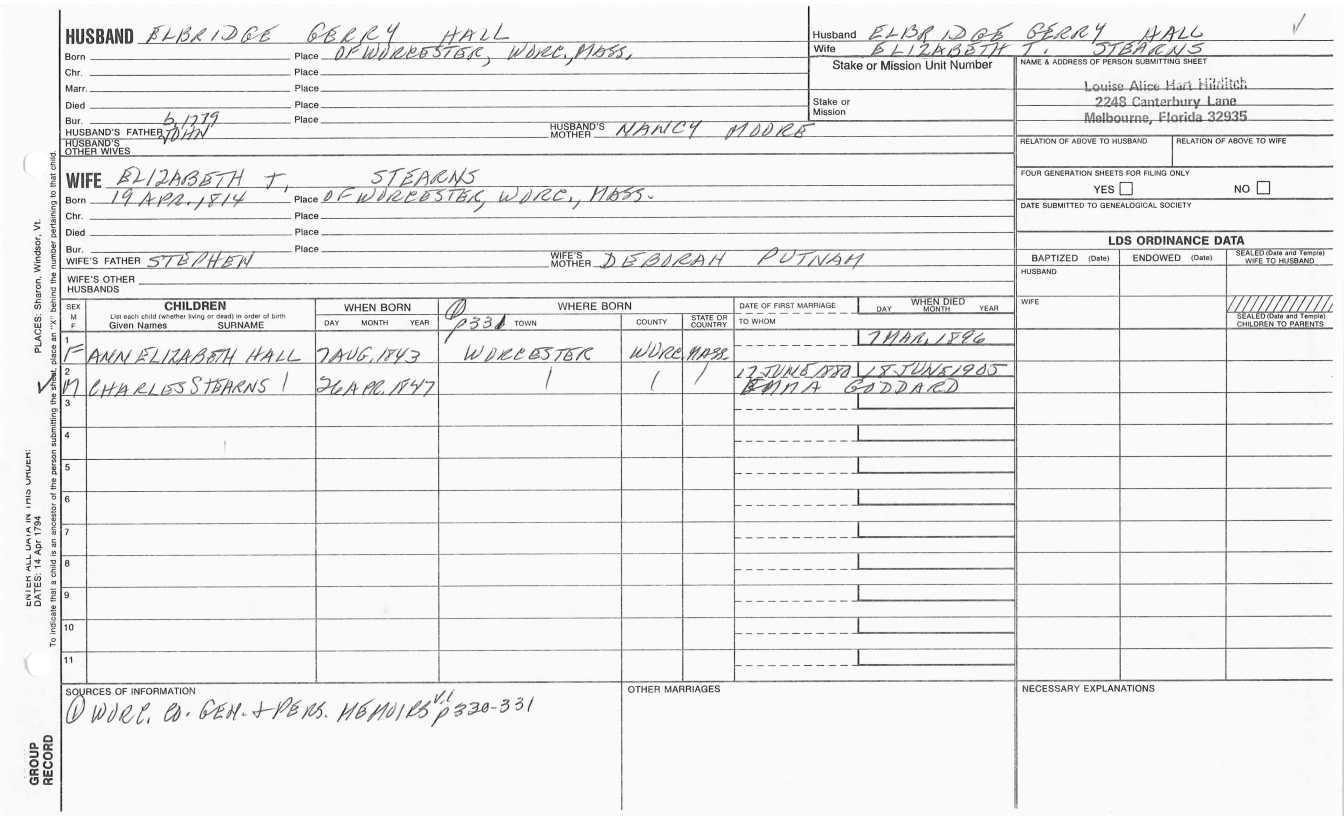 HUSBAND ELBRIDGE GERRY HALL
Born Place OF WORCESTER, WORC., MASS.
Chr. Place
Marr. Place
Died Place
Bur. Place
b. 1779
HUSBAND'S FATHER JOHN HUSBAND'S MOTHER NANCY MOORE
HUSBAND'S OTHER WIVES
WIFE ELIZABETH T. STEARNS
Born 19 APR. 1814 Place OF WORCESTER, WORC., MASS.
Chr. Place
Died Place
Bur. Place
WIFE'S FATHER STEPHEN WIFE'S MOTHER DEBORAH PUTNAM
WIFE'S OTHER HUSBANDS
Husband ELBRIDGE GERRY HALL
Wife ELIZABETH T. STEARNS
Stake or Mission Unit Number
Stake or Mission
NAME & ADDRESS OF PERSON SUBMITTING SHEET
Louise Alice Hart Hilditch
2248 Canterbury Lane
Melbourne, Florida 32935
RELATION OF ABOVE TO HUSBAND RELATION OF ABOVE TO WIFE
FOUR GENERATION SHEETS FOR FILING ONLY
YES NO
DATE SUBMITTED TO GENEALOGICAL SOCIETY
LDS ORDINANCE DATA
BAPTIZED (Date) ENDOWED (Date) SEALED (Date and Temple) WIFE TO HUSBAND
HUSBAND
WIFE
SEALED (Date and Temple) CHILDREN TO PARENTS
SEX M F
CHILDREN
List each child (whether living or dead) in order of birth
Given Names SURNAME
WHEN BORN
DAY MONTH YEAR
① p331
WHERE BORN
TOWN COUNTY STATE OR COUNTRY
DATE OF FIRST MARRIAGE
TO WHOM
WHEN DIED
DAY MONTH YEAR
1 F ANN ELIZABETH HALL 7 AUG. 1843 WORCESTER WORC MASS. 7 MAR. 1896
2 M CHARLES STEARNS 26 APR. 1847 17 JUNE 1880 18 JUNE 1905
EMMA GODDARD
3
4
5
6
7
8
9
10
11
SOURCES OF INFORMATION
① WORC. CO. GEN. + PERS. MEMOIRS V.1 p330-331
OTHER MARRIAGES
NECESSARY EXPLANATIONS
PLACES: Sharon, Windsor, Vt.
To indicate that a child is an ancestor of the person submitting the sheet, place an "X" behind the number pertaining to that child.
ENTER ALL DATA IN THIS ORDER:
DATES: 14 Apr 1794
GROUP RECORD